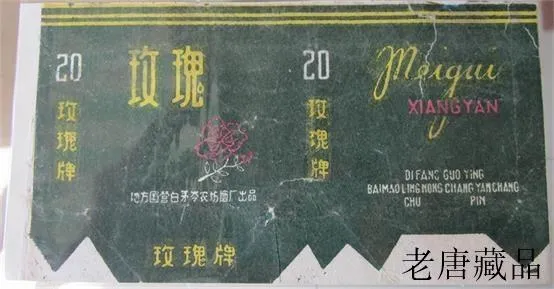 20
玫瑰牌
玫瑰
地方国营白茅岭农场烟厂出品
玫瑰牌
20
玫瑰牌
Meigui
XIANGYAN
DIFANG GUO YING
BAIMAOLING NONG CHANG YANCHANG
CHU PIN
老唐藏品